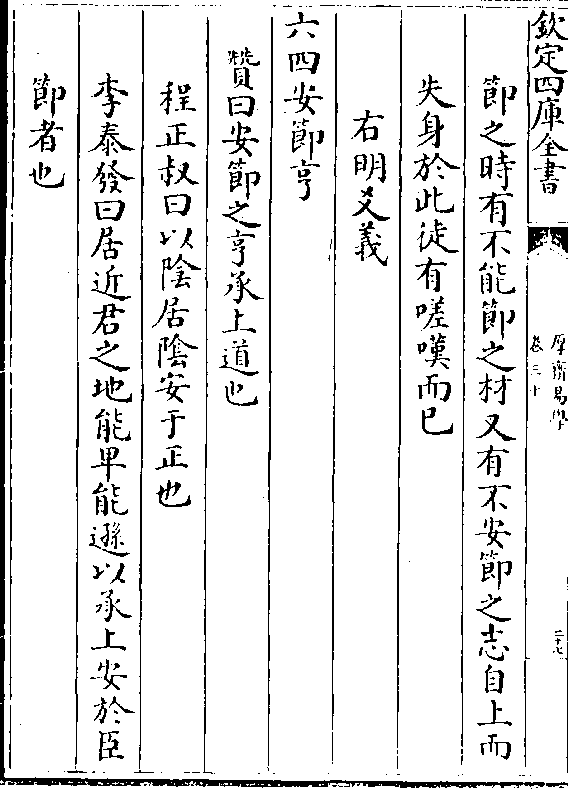 欽定四庫全書
厚齋易學
卷三十
二十七
節之時有不能節之材又有不安節之志自上而
失身於此徒有嗟嘆而已
右明爻義
六四安節亨
贊曰安節之亨承上道也
程正叔曰以陰居陰安于正也
李泰發曰居近君之地能卑能遜以承上安於臣
節者也